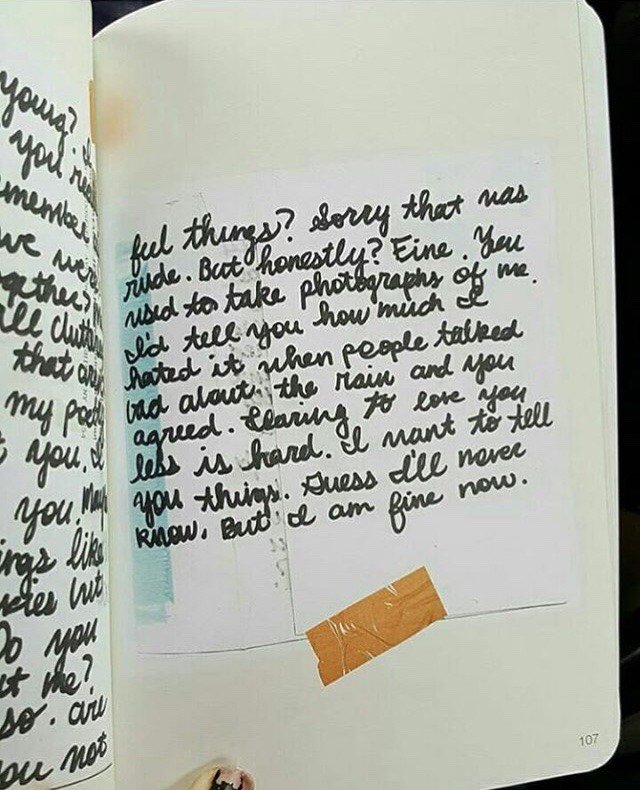 young?
you
remember
we were
together?
all
that
my
you. I
you. May
ings like
but
Do you
at me?
so. are
you not
ful things? Sorry that was
rude. But honestly? Fine. You
used to take photographs of me.
I'd tell you how much I
hated it when people talked
bad about the rain and you
agreed. Learing to love you
less is hard. I want to tell
you things. Guess I'll never
know. But I am fine now.
107